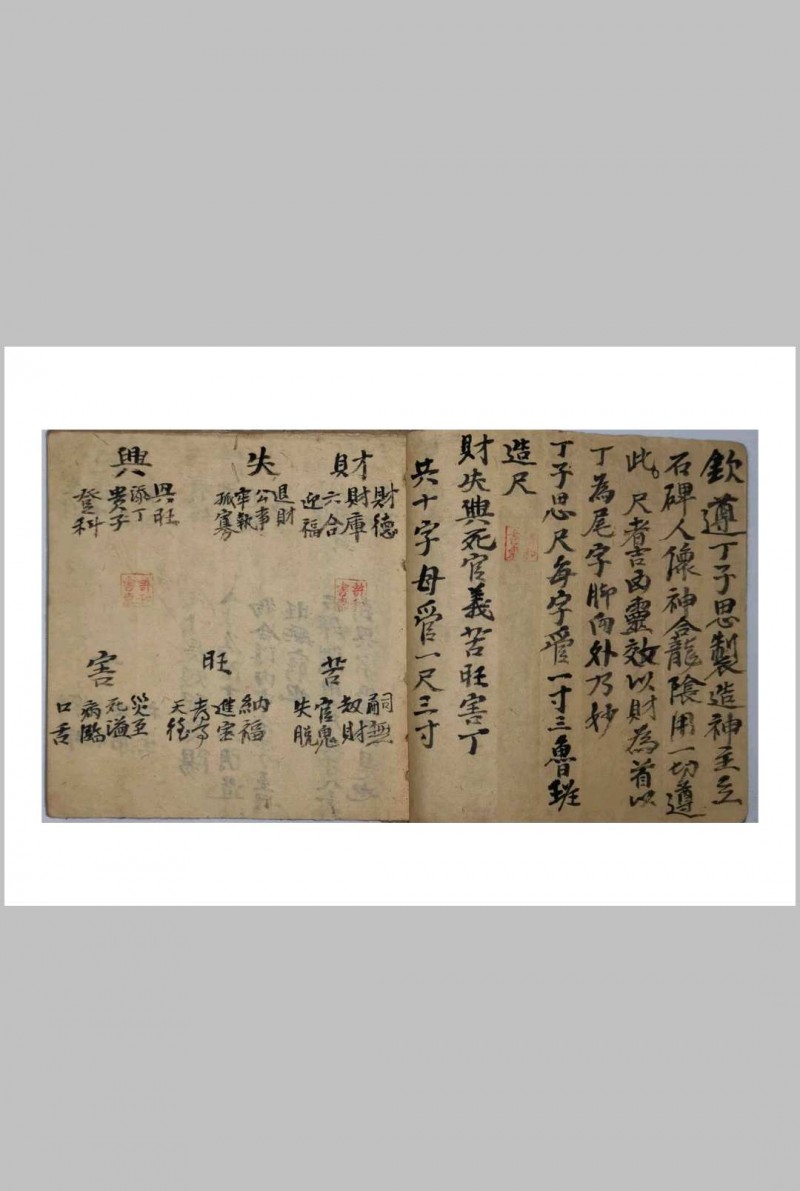 欽遵丁子思製造神主立
石碑人像神合龍陰用一切遵
此尺者吉凶靈效以財為首以
丁為尾字腳向外乃妙
丁子思尺每字管一寸三魯班
造尺
財失興死官義苦旺害丁
共十字母管一尺三寸
財
財德
財庫
六合
迎福
失
退財
公事
牢執
孤寡
興
興旺
添丁
貴子
登科
苦
嗣無
官鬼
失脫
旺
納福
進宝
害
災至
死
病臨
口舌